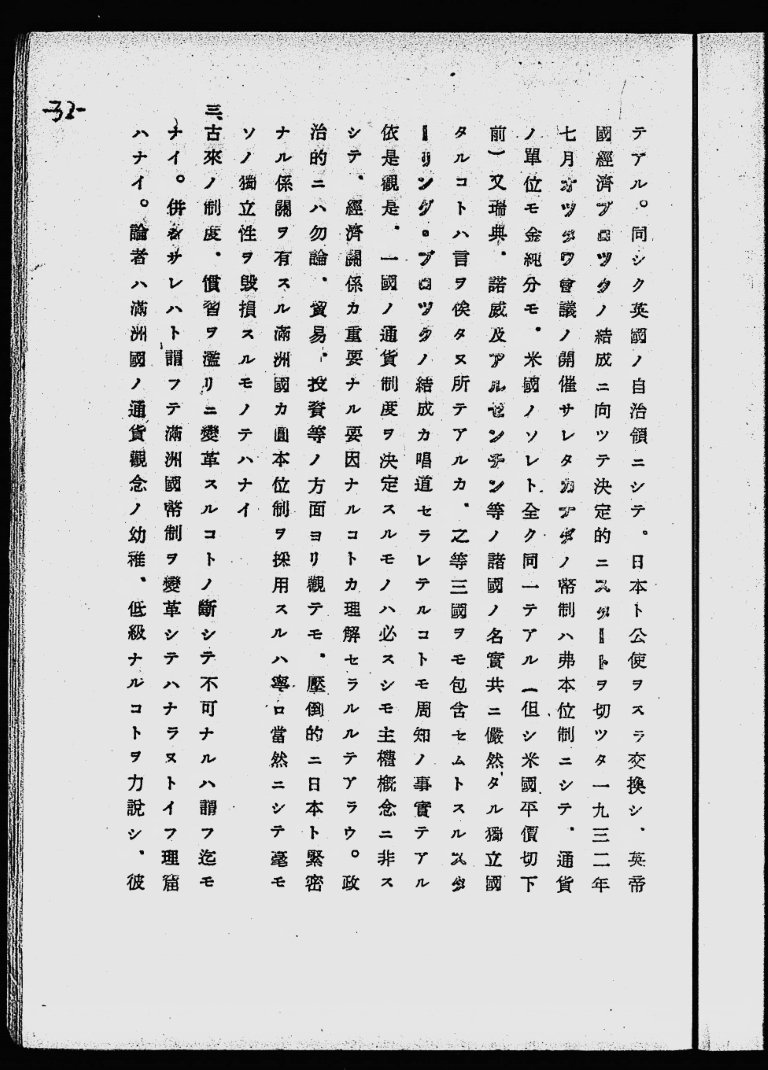 -32-
テアル。同シク英國ノ自治領ニシテ。日本ト公使ヲスラ交換シ、英帝
國經濟ブロツクノ結成ニ向ツテ決定的ニスタートヲ切ツタ一九三二年
七月オツタワ會議ノ開催サレタカナダノ幣制ハ弗本位制ニシテ、通貨
ノ單位モ金純分モ、米國ノソレト全ク同一テアル(但シ米國平價切下
前)又瑞典、諾威及アルゼンチン等ノ諸國ノ名實共ニ儼然タル獨立國
タルコトハ言ヲ俟タヌ所テアルカ、之等三國ヲモ包含セムトスルスタ
ーリング・ブロツクノ結成カ唱道セラレテルコトモ周知ノ事實テアル
依是觀是、一國ノ通貨制度ヲ決定スルモノハ必スシモ主權概念ニ非ス
シテ、經濟關係カ重要ナル要因ナルコトカ理解セラルルテアラウ。政
治的ニハ勿論、貿易、投資等ノ方面ヨリ觀テモ、壓倒的ニ日本ト緊密
ナル係關ヲ有スル滿洲國カ圓本位制ヲ採用スルハ寧ロ當然ニシテ毫モ
ソノ獨立性ヲ毀損スルモノテハナイ
三、古來ノ制度、慣習ヲ濫リニ變革スルコトノ斷シテ不可ナルハ謂フ迄モ
ナイ。併サレハト謂フテ滿洲國幣制ヲ變革シテハナラヌトイフ理窟
ハナイ。論者ハ滿洲國ノ通貨觀念ノ幼稚、低級ナルコトヲ力說シ、彼